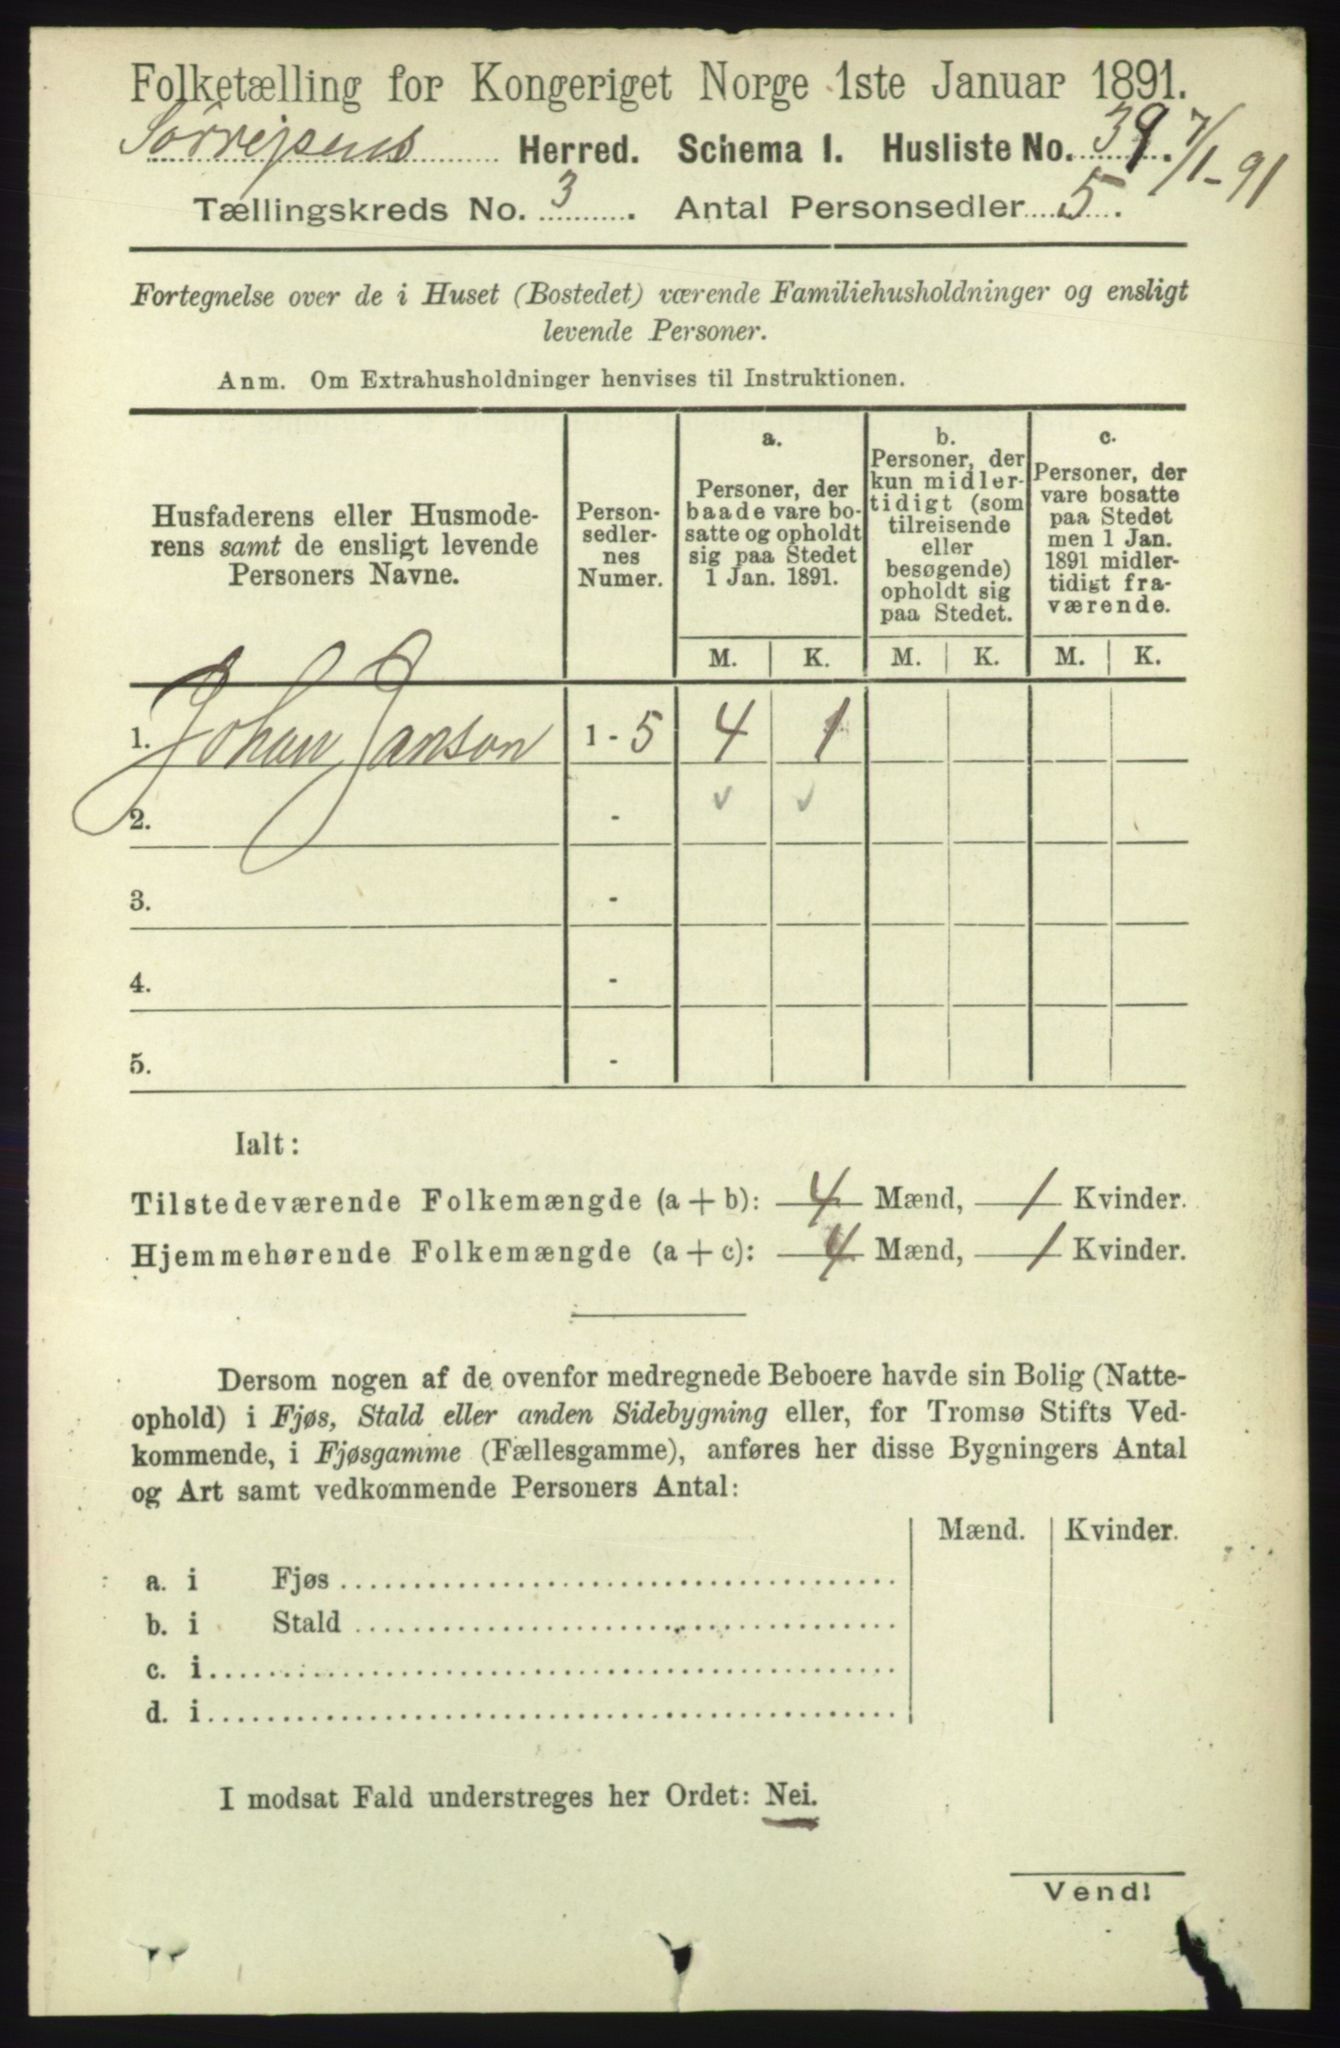 Folketælling for Kongeriget Norge 1ste Januar 1891.
Sørrejsens Herred. Schema I. Husliste No. 39. 7/1-91
Tællingskreds No. 3. Antal Personsedler 5.
Fortegnelse over de i Huset (Bostedet) værende Familiehusholdninger og ensligt
levende Personer.
Anm. Om Extrahusholdninger henvises til Instruktionen.
Husfaderens eller Husmode-
rens samt de ensligt levende
Personers Navne.
Person-
sedler-
nes
Numer.
a.
Personer, der
baade vare bo-
satte og opholdt
sig paa Stedet
1 Jan. 1891.
b.
Personer, der
kun midler-
tidigt (som
tilreisende
eller
besøgende)
opholdt sig
paa Stedet.
c.
Personer, der
vare bosatte
paa Stedet
men 1 Jan.
1891 midler-
tidigt fra-
værende.
M. K. M. K. M. K.
1. Johan Janson 1 - 5 4 1
2. - ✓ ✓
3. -
4. -
5. -
Ialt:
Tilstedeværende Folkemængde (a + b): 4 Mænd, 1 Kvinder.
Hjemmehørende Folkemængde (a + c): 4 Mænd, 1 Kvinder.
Dersom nogen af de ovenfor medregnede Beboere havde sin Bolig (Natte-
ophold) i Fjøs, Stald eller anden Sidebygning eller, for Tromsø Stifts Ved-
kommende, i Fjøsgamme (Fællesgamme), anføres her disse Bygningers Antal
og Art samt vedkommende Personers Antal:
Mænd. Kvinder.
a. i Fjøs
b. i Stald
c. i
d. i
I modsat Fald understreges her Ordet: Nei.
Vend!